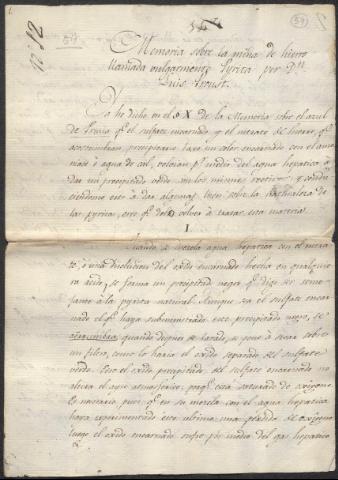 Memoria sobre la mina de hierro
llamada vulgarmente Pyrita por Dn.
Luis Proust.
Ya he dicho en el § X de la Memoria sobre el azul
de Prusia qe. el sulfate encarnado y el nitrate de hierro, qe.
acostumbran precipitarse baxo un color encarnado con el amo
niaco ò agua de cal, volvian pr. medio del agua hepatica à
dar un precipitado obscuro los mismos reactivos y condu
ciendome esto à dar algunas luces sobre la naturaleza de
las pyritas, creo qe. debo volver à tratar esta materia.
I.
Quando se mezcla agua hepatica con el nitra
to, ò una disolucion del oxide encarnado hecha en qualquie
ra acido, se forma un precipitado negro qe. dixe ser seme
jante à la pyrita natural. Aunque sea el sulfate encar
nado el qe. haya subministrado este precipitado negro, se
quando despues de lavado, se pone à secar sobre
un filtro, como lo haria el oxide separado del sulfate
verde. Pero el oxide precipitado del sulfate encarnado no
altera el ayre atmosferico, porqe. está saturado de oxigeno.
Es necesario, pues, qe. en su mezcla con el agua hepatica
haya experimentado este ultimo una perdida de oxigeno
luego el oxide encarnado sufre por medio del gas hepatico